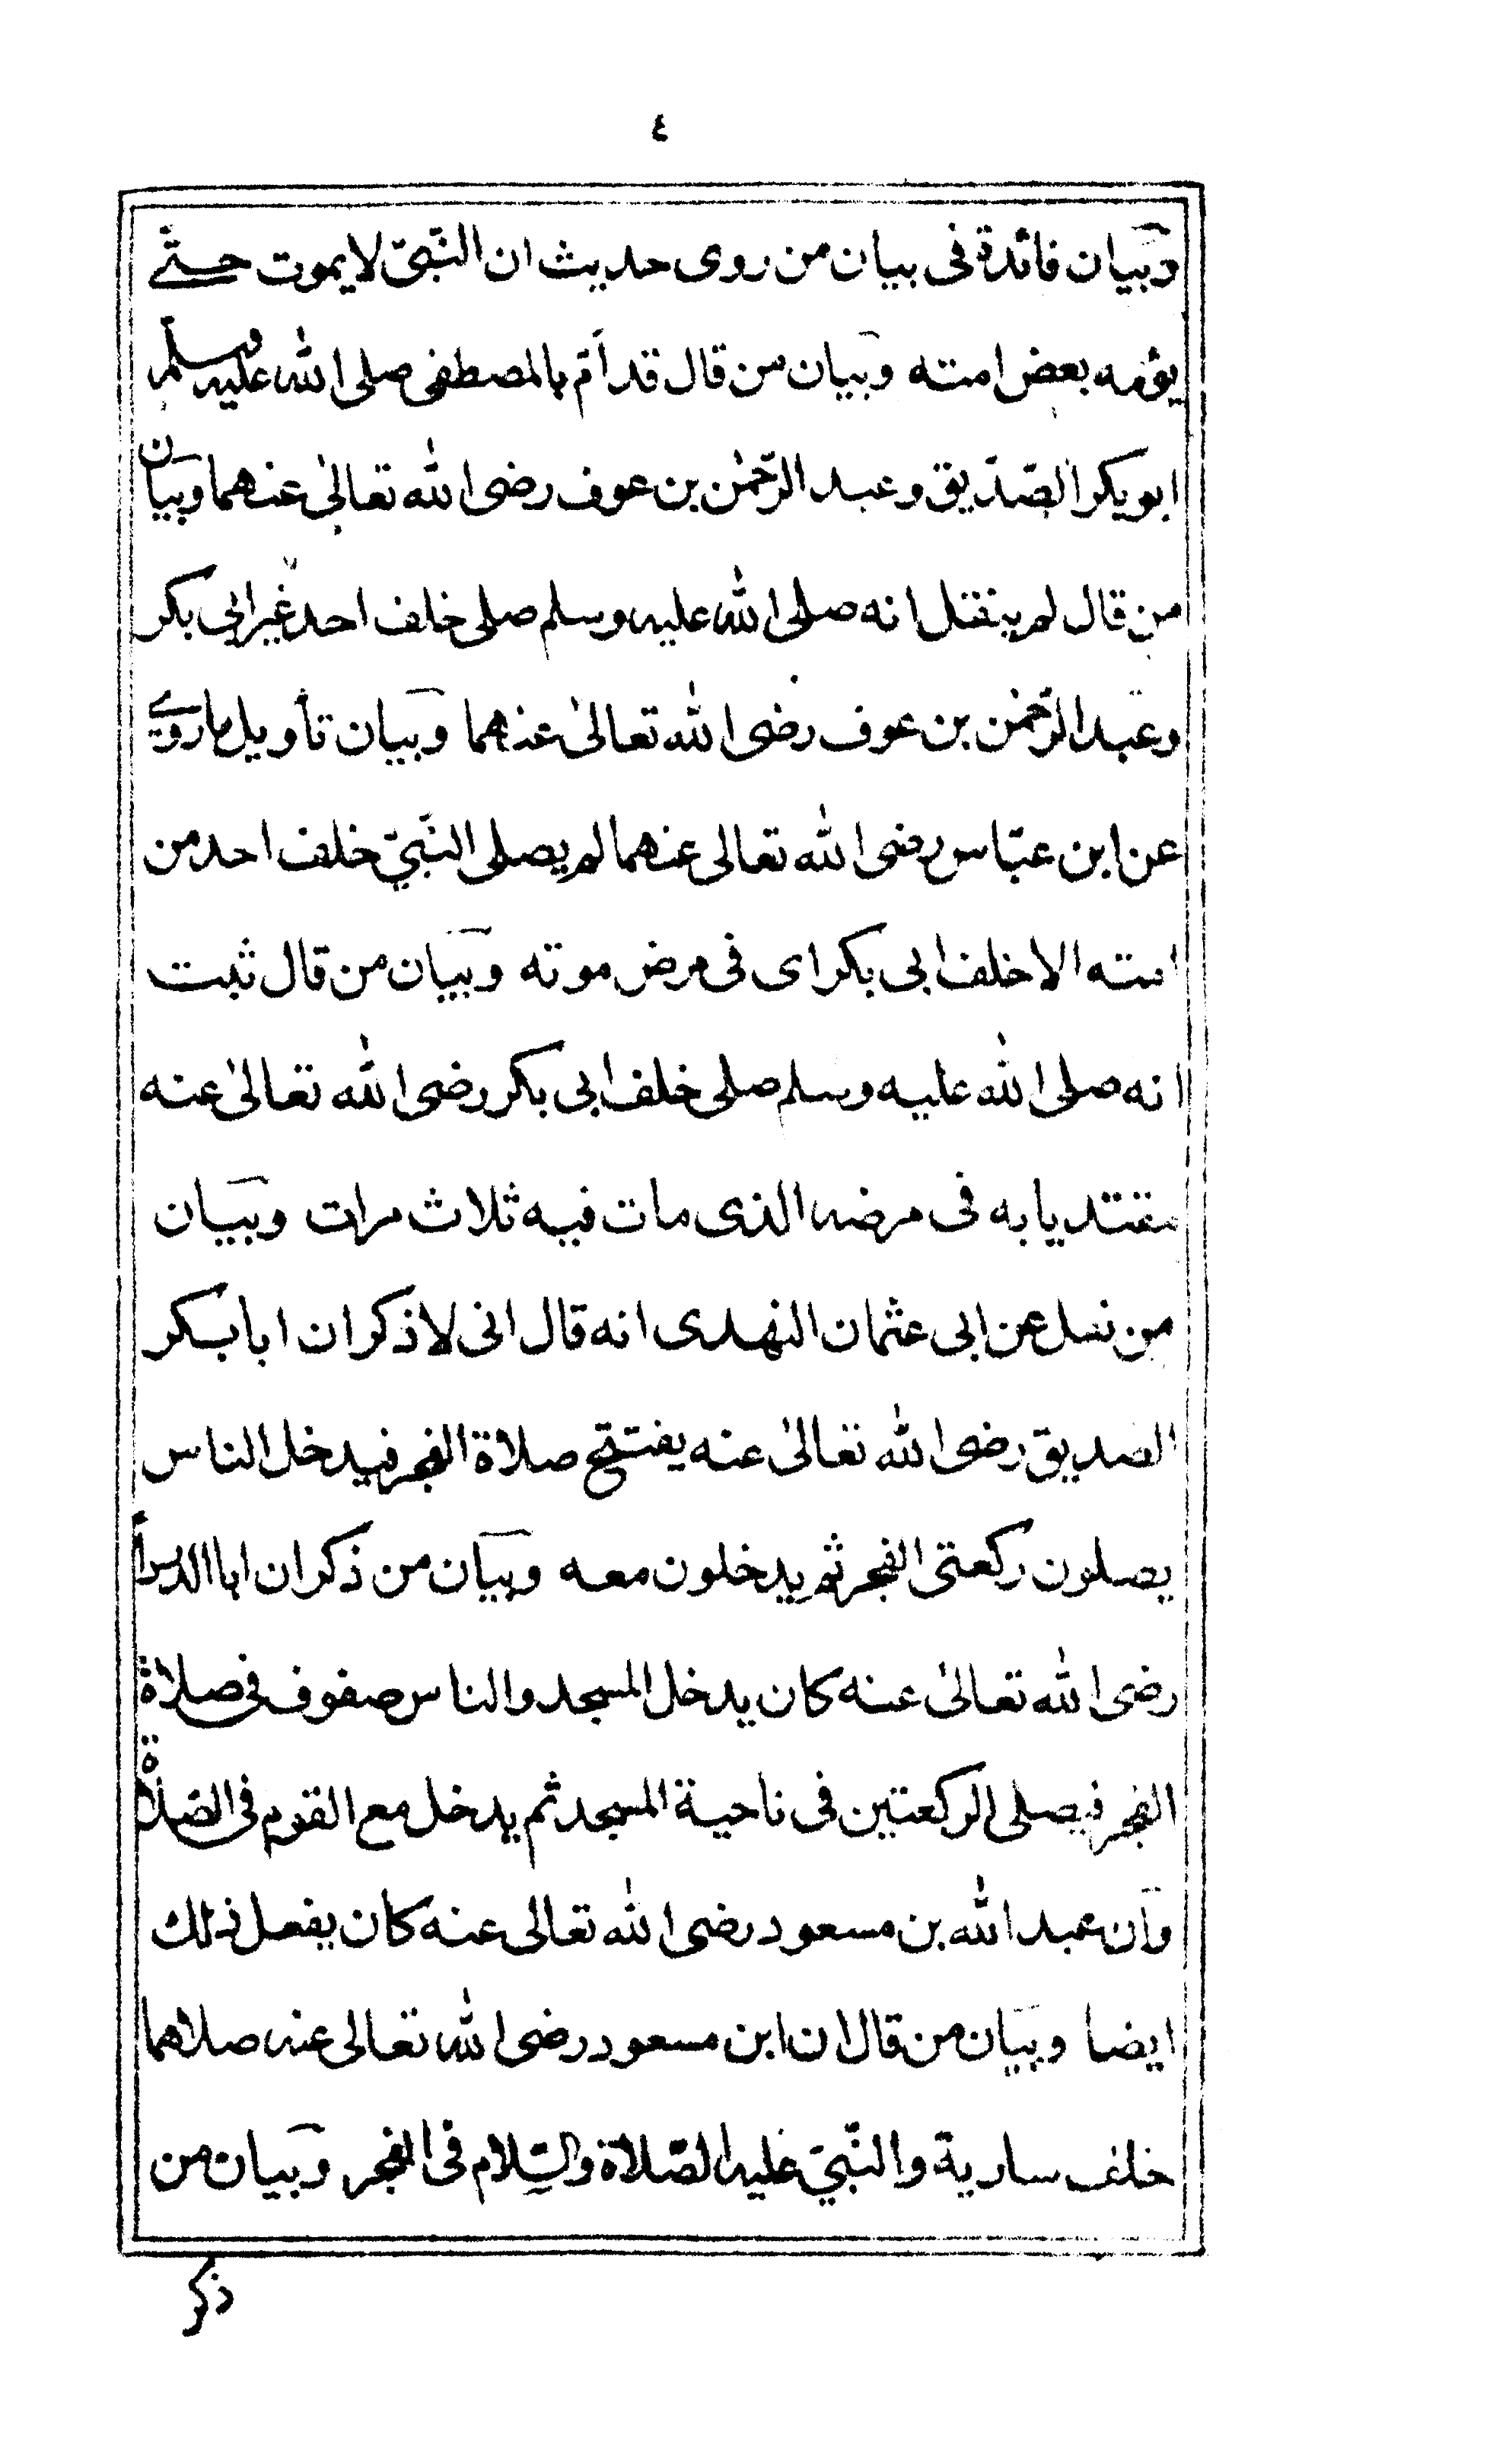 ٤
وبيان فائدة فى بيان من روى حديث ان النّبىّ لا يموت حتّے
يؤمه بعض امته وبيان من قال قد أمّ بالمصطفى صلى الله عليه وسلّم
ابو بكر الصّدّيق وعبد الرّحمٰن بن عوف رضى الله تعالىٰ عنهما وبيان
من قال لم ينقل انه صلى الله عليه وسلم صلى خلف احد غير ابى بكر
وعبد الرّحمٰن بن عوف رضى الله تعالىٰ عنهما وبيان تأويل ما روے
عن ابن عبّاس رضى الله تعالى عنهما لم يصلى النّبىّ خلف احد من
امته الا خلف ابى بكر اى فى مرض موته وبيان من قال ثبت
انه صلى الله عليه وسلم صلى خلف ابى بكر رضى الله تعالىٰ عنه
مقتديا به فى مرضه الذى مات فيه ثلاث مرات وبيان
من نقل عن ابى عثمان النهدى انه قال انى لاذكر ان ابا بكر
الصديق رضى الله تعالىٰ عنه يفتتح صلاة الفجر فيدخل الناس
يصلون ركعتى الفجر ثم يدخلون معه وبيان من ذكر ان ابا الدردأ
رضى الله تعالىٰ عنه كان يدخل المسجد والناس صفوف فى صلاة
الفجر فيصلى الركعتين فى ناحية المسجد ثم يدخل مع القوم فى الصّلاة
وان عبد الله بن مسعود رضى الله تعالى عنه كان يفعل ذلك
ايضا وبيان من قال ان ابن مسعود رضى الله تعالى عنه صلاهما
خلف سارية والنّبىّ عليه الصّلاة والسّلام فى الفجر وبيان من
ذكر